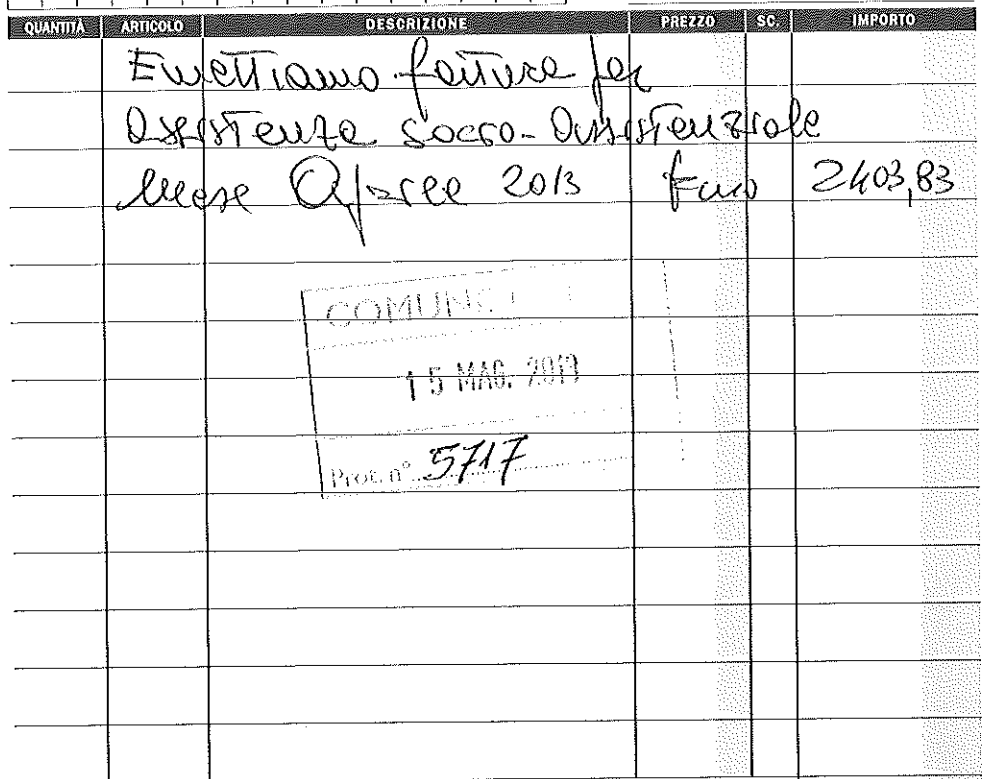 QUANTITÀ ARTICOLO DESCRIZIONE PREZZO SC. IMPORTO
Emettiamo fattura per
Assistenza Socio-Assistenziale
Mese Aprile 2013 Euro 2403,83
COMUNE
15 MAG. 2013
Prot. n° 5717